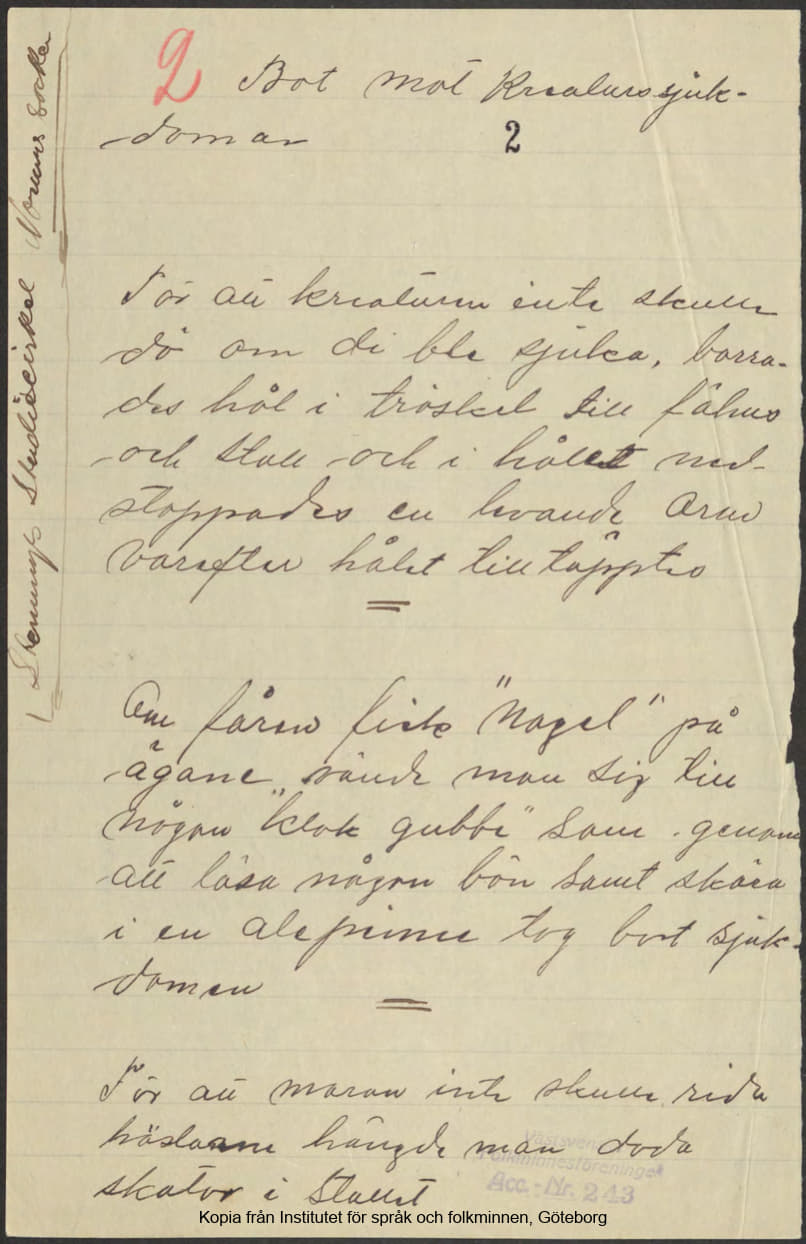 2 Bot mot Kreaturssjuk-
domar 2
För att kreaturen inte skulle
dö om di ble sjuka, borra-
des hål i tröskel till fähus
och stall och i hålet ned-
stoppades en levande orm
varefter hålet tilltäpptes
Om fåren fick "Nagel" på
ögane vände man sig till
någon "klok gubbe" som genom
att läsa någon bön samt skära
i en alepinne tog bort sjuk-
domen
För att maran inte skulle rida
hästarne hängde man döda
skator i stallet
Stenungs Studiecirkel Norums socken
Västsvenska
Folkminnesföreningen
Acc.-Nr. 243
Kopia från Institutet för språk och folkminnen, Göteborg